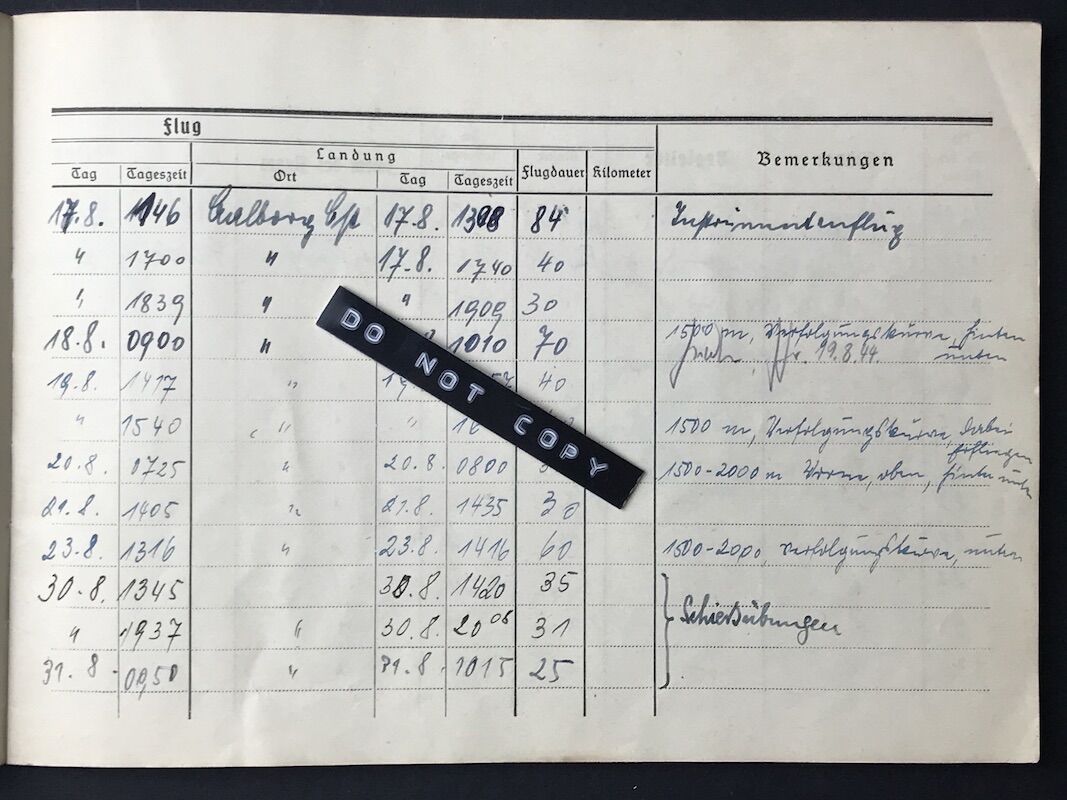 Flug
Landung
Bemerkungen
Tag Tageszeit Ort Tag Tageszeit Flugdauer Kilometer
17.8. 1146 Aalborg 17.8. 84 Instrumentenflug
" 1700 " 17.8. 1740 40
" 1839 " " 1909 30
18.8. 0900 " 1010 70 1500 m, Verfolgungskurve, hinten
unten
19.8.44
19.8. 1417 " 40
" 1540 " " 1500 m, Verfolgungskurve, dabei
20.8. 0725 " 20.8. 0800 1500-2000 m Vorne, oben, hinten unten
21.8. 1405 " 21.8. 1435 30
23.8. 1316 " 23.8. 1416 60 1500-2000, Verfolgungskurve, unten
30.8. 1345 30.8. 1420 35
" 1937 " 30.8. 20 08 31 Schießübungen
31.8. 0950 " 31.8. 1015 25
DO NOT COPY